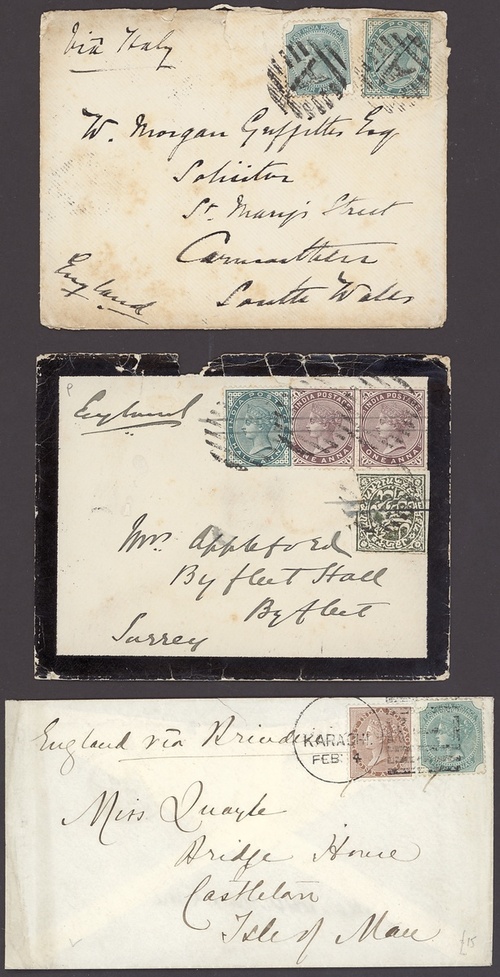 Via Italy
W. Morgan Griffiths Esq
Solicitor
St. Mary's Street
Carmarthen
England
South Wales
England
INDIA POSTAGE
INDIA POSTAGE
ONE ANNA
ONE ANNA
Mrs Appleford
Byfleet Hall
Byfleet
Surrey
England via
KARACHI
FEB 4
Miss Quayle
Bridge House
Castleton
Isle of Man
£15